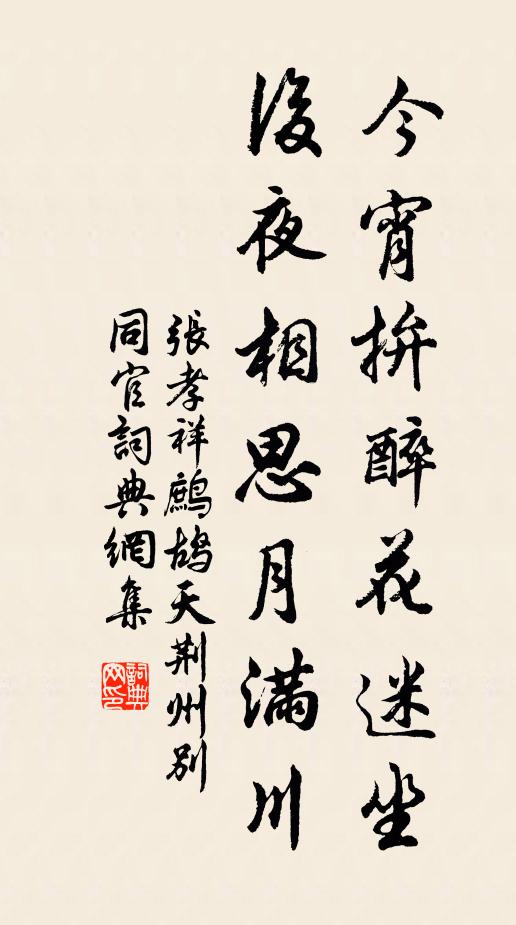 今宵拚醉花迷坐
後夜相思月滿川
張孝祥鷓鴣天荆州別
同官詞典網集
詞典
网印